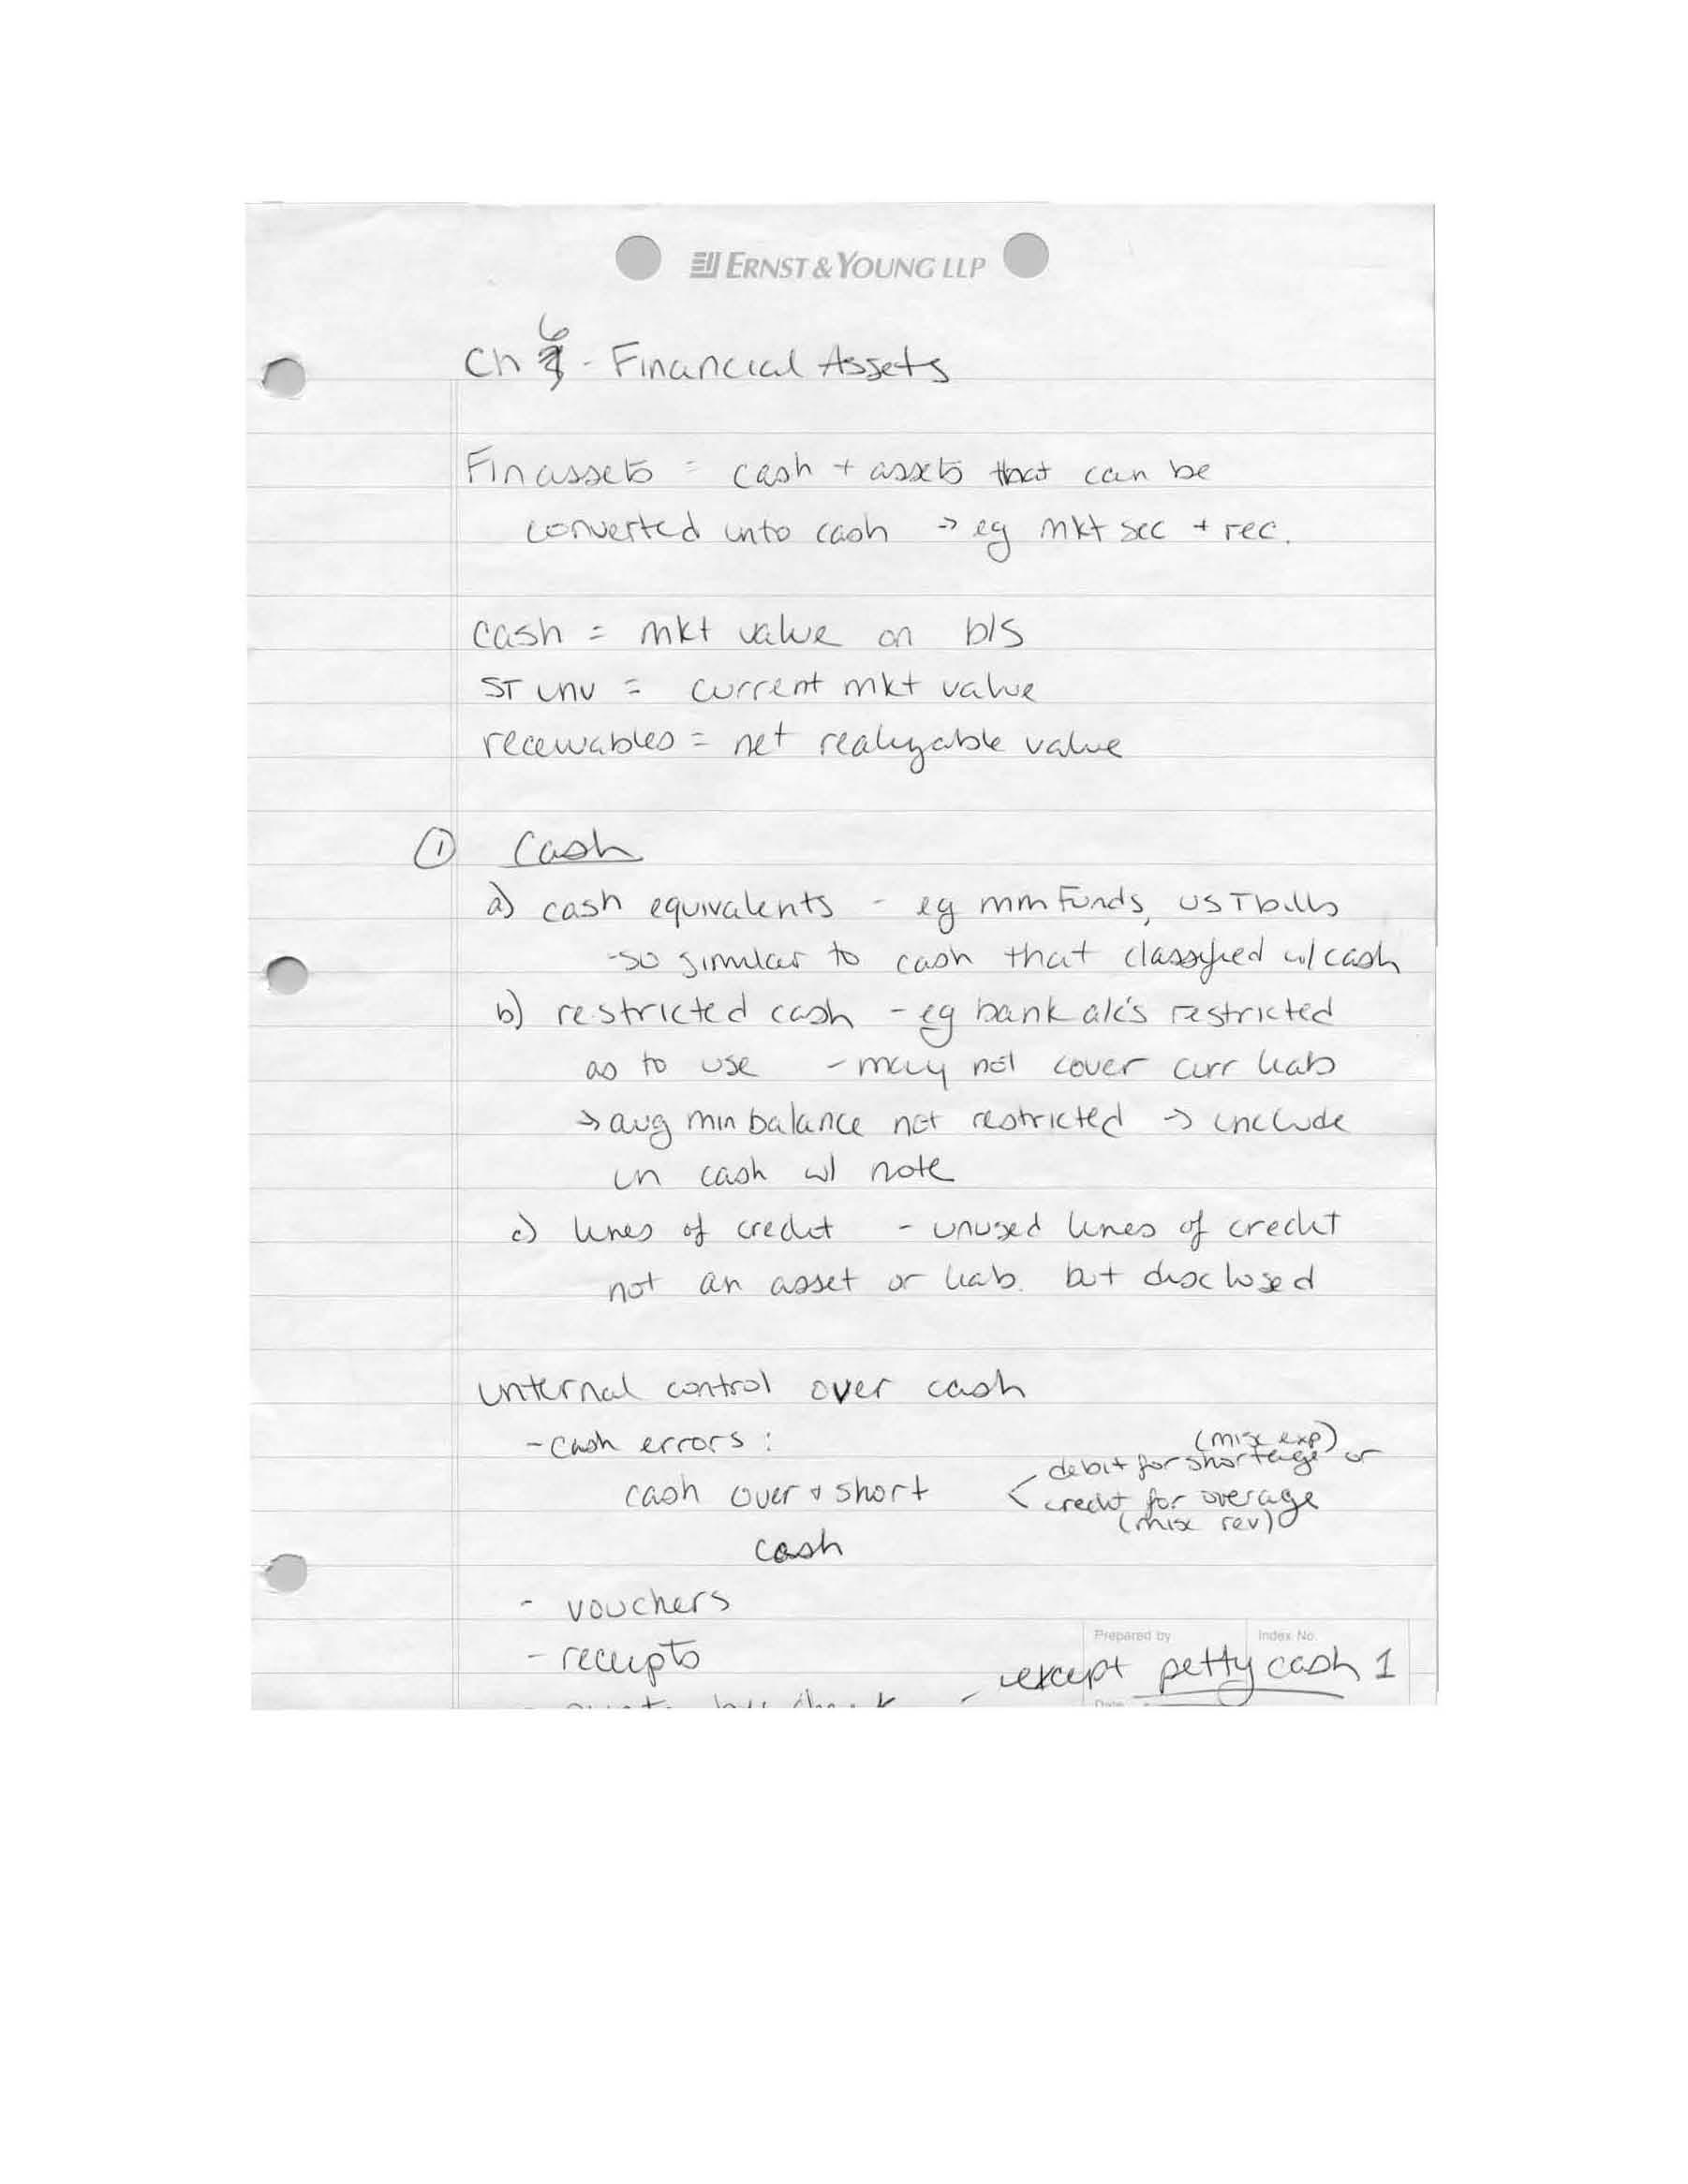 ERNST & YOUNG LLP
Ch 6 - Financial Assets
Fin assets = cash + assets that can be
converted into cash → eg mkt sec + rec.
cash = mkt value on b/s
ST inv = current mkt value
receivables = net realizable value
① Cash
a) cash equivalents - eg mm funds, US T bills
- so similar to cash that classified w/ cash
b) restricted cash - eg bank a/c's restricted
as to use - may not cover curr liab
→ avg min balance not restricted → include
in cash w/ note
c) lines of credit - unused lines of credit
not an asset or liab. but disclosed
internal control over cash
- cash errors :
(misc exp)
debit for shortage or
cash over & short < credit for overage
(misc rev)
cash
- vouchers
Prepared by Index No.
- receipts
- except petty cash 1
by check
Date